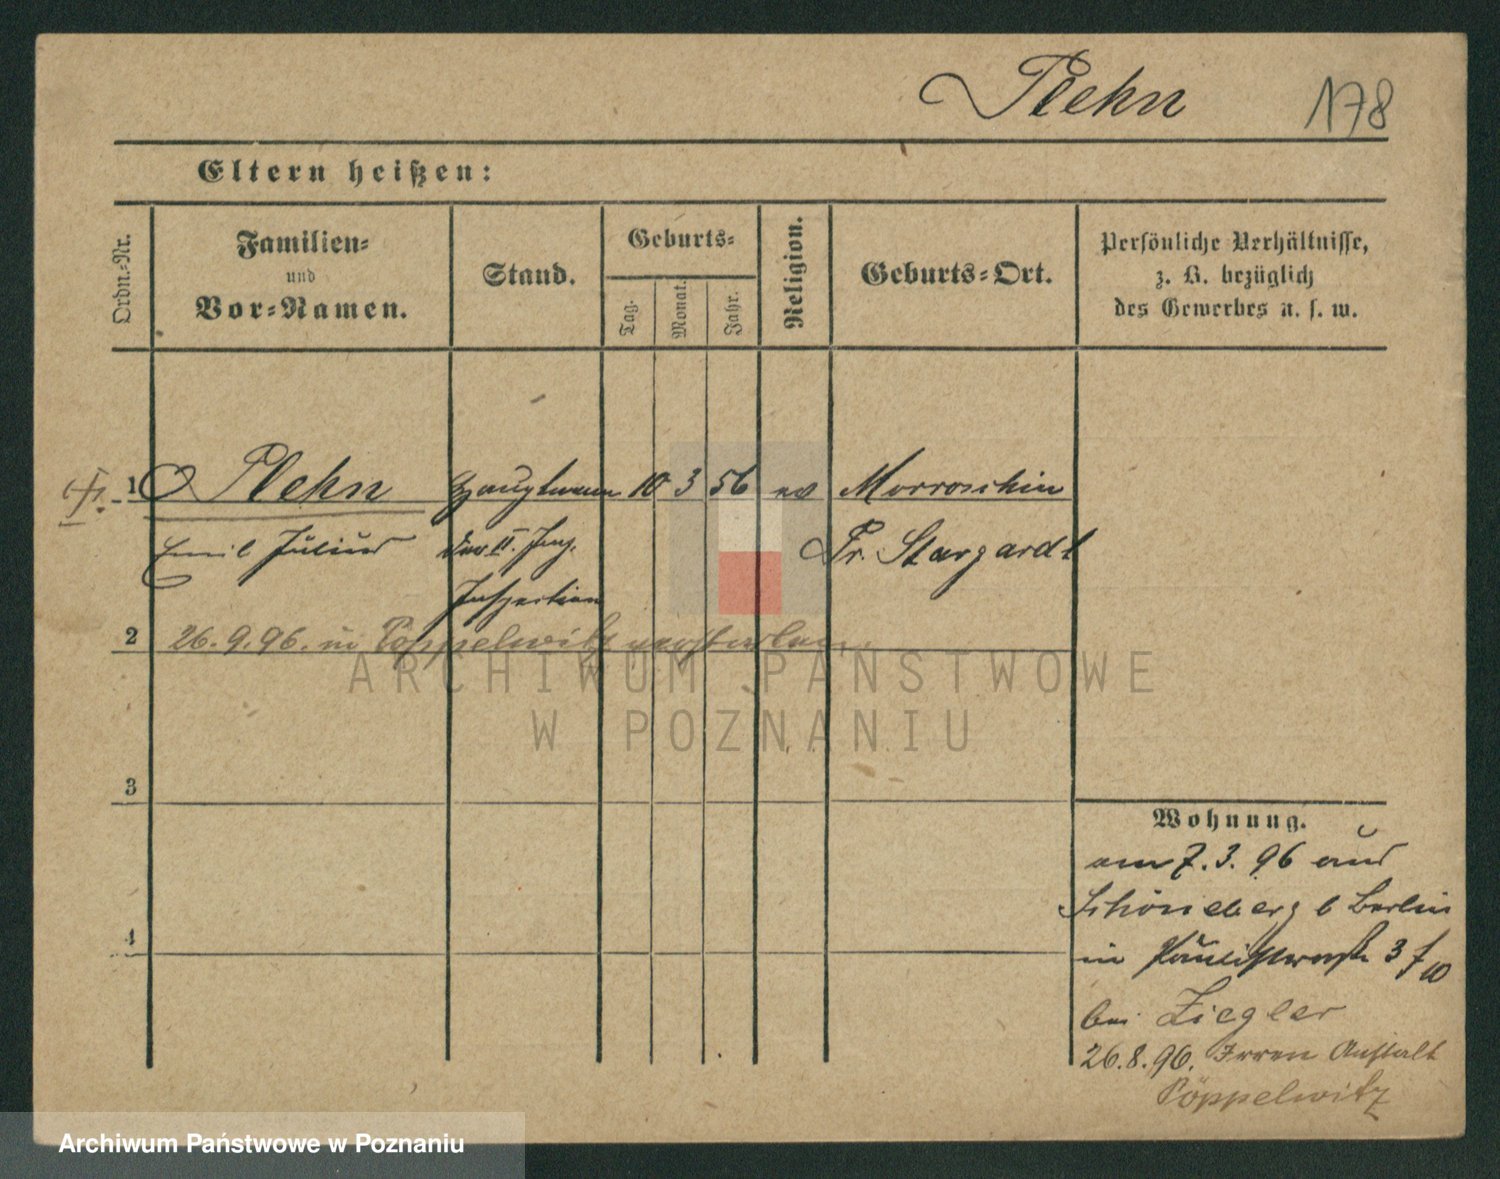 Plehn 178
Eltern heißen:
Ordn.-Nr.
Familien-
und
Vor-Namen.
Stand.
Geburts-
Tag.
Monat.
Jahr.
Religion.
Geburts-Ort.
Persönliche Verhältnisse,
z. B. bezüglich
des Gewerbes u. s. w.
1 Plehn Hauptmann 10 3 56 ev Morroschin
Emil Julius der II. Ing. Pr. Stargardt
Inspection
2 26.9.96. in Pöppelwitz verstorben.
ARCHIWUM PAŃSTWOWE
W POZNANIU
3
Wohnung.
am 7.3.96 aus
Schöneberg b Berlin
4
in 3
bei Ziegler
26.8.96. Irren Anstalt
Pöppelwitz
Archiwum Państwowe w Poznaniu